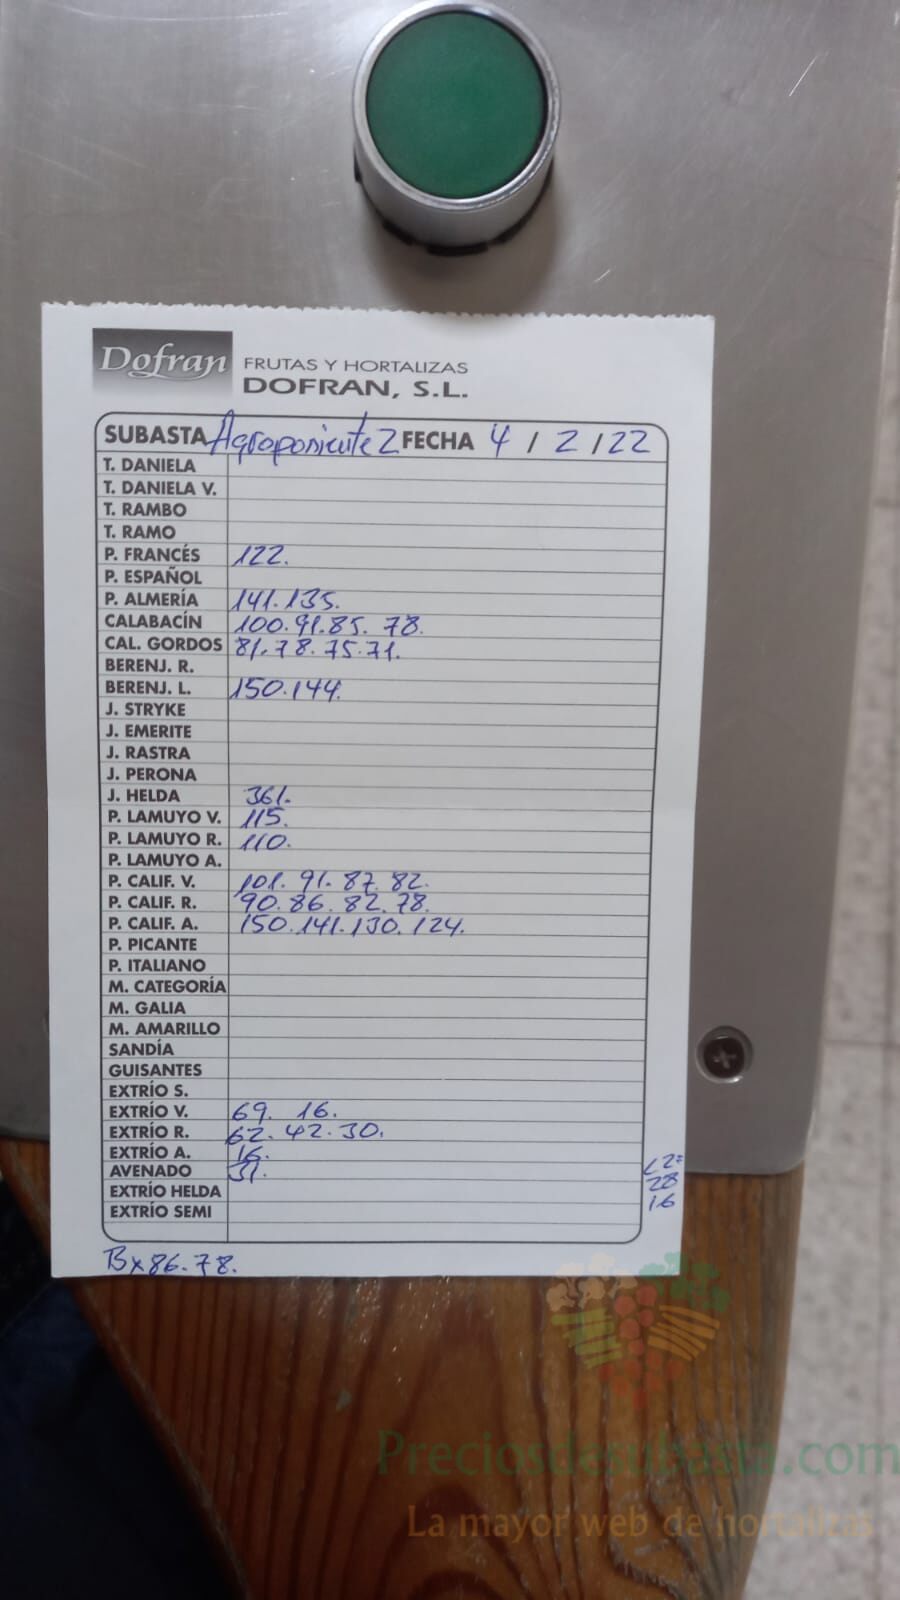 Dofran FRUTAS Y HORTALIZAS
DOFRAN, S.L.
SUBASTA Agroponiente 2 FECHA 4 / 2 / 22
T. DANIELA
T. DANIELA V.
T. RAMBO
T. RAMO
P. FRANCÉS 122.
P. ESPAÑOL
P. ALMERÍA 141. 135.
CALABACÍN 100. 91. 85. 78.
CAL. GORDOS 81. 78. 75. 71.
BERENJ. R.
BERENJ. L. 150. 144.
J. STRYKE
J. EMERITE
J. RASTRA
J. PERONA
J. HELDA 361.
P. LAMUYO V. 115.
P. LAMUYO R. 110.
P. LAMUYO A.
P. CALIF. V. 101. 91. 87. 82.
P. CALIF. R. 90. 86. 82. 78.
P. CALIF. A. 150. 141. 130. 124.
P. PICANTE
P. ITALIANO
M. CATEGORÍA
M. GALIA
M. AMARILLO
SANDÍA
GUISANTES
EXTRÍO S.
EXTRÍO V. 69. 16.
EXTRÍO R. 62. 42. 30.
EXTRÍO A. 16.
AVENADO 31.
EXTRÍO HELDA 28
EXTRÍO SEMI 16
Bx 86. 78.
Preciosdesubasta.com
La mayor web de hortalizas